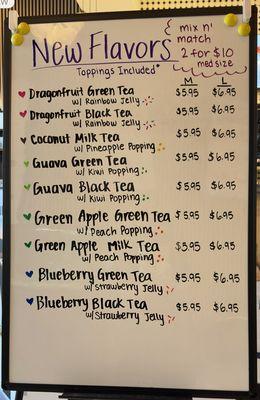 New Flavors
Toppings Included*
mix n'
match
2 for $10
med size
M L
Dragonfruit Green Tea $5.95 $6.95
w/ Rainbow Jelly
Dragonfruit Black Tea $5.95 $6.95
w/ Rainbow Jelly
Coconut Milk Tea $5.95 $6.95
w/ Pineapple Popping
Guava Green Tea $5.95 $6.95
w/ Kiwi Popping
Guava Black Tea $5.95 $6.95
w/ Kiwi Popping
Green Apple Green Tea $5.95 $6.95
w/ Peach Popping
Green Apple Milk Tea $5.95 $6.95
w/ Peach Popping
Blueberry Green Tea $5.95 $6.95
w/ Strawberry Jelly
Blueberry Black Tea $5.95 $6.95
w/ Strawberry Jelly